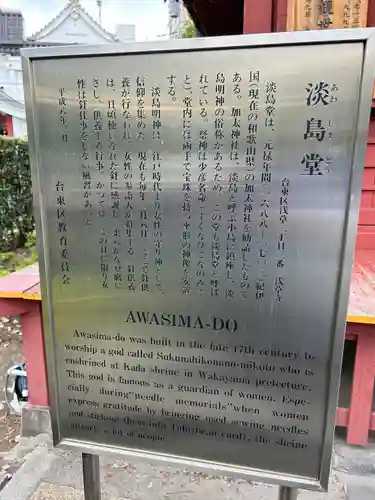 淡島堂
あわしまどう
台東区浅草二丁目三番 浅草寺
淡島堂は、元禄年間(一六八八~一七〇三)に紀伊
国(現在の和歌山県)の加太神社を勧請したもので
ある。加太神社は、淡島と呼ぶ小島に鎮座し、淡
島明神の俗称があるため、この堂も淡島堂と呼ば
れている。祭神は少彦名命(すくなひこなのみこ
と)、堂内には両手で宝珠を持つ坐形の神像を安置
する。
淡島明神は、江戸時代より女性の守り神として、
信仰を集めた。現在も毎年二月八日、ここで針供
養が行なわれ、女性の参詣人が群集する。針供養
は、日頃使いなれた針に感謝し、柔らかな豆腐に
さし、供養する行事。かつては、この日に限り女
性は針仕事をしない風習があった。
平成六年三月
台東区教育委員会
AWASIMA-DO
Awasima-do was built in the late 17th century to
worship a god called Sukunahikonano-mikoto who is
enshrined at Kada shrine in Wakayama prefecture.
This god is famous as a guardian of women. Espe-
cially during "needle memorials" when women
express gratitude by bringing used sewing needles
and stickings them into Tofu(bean curd), the shrine
attract a lot of people.